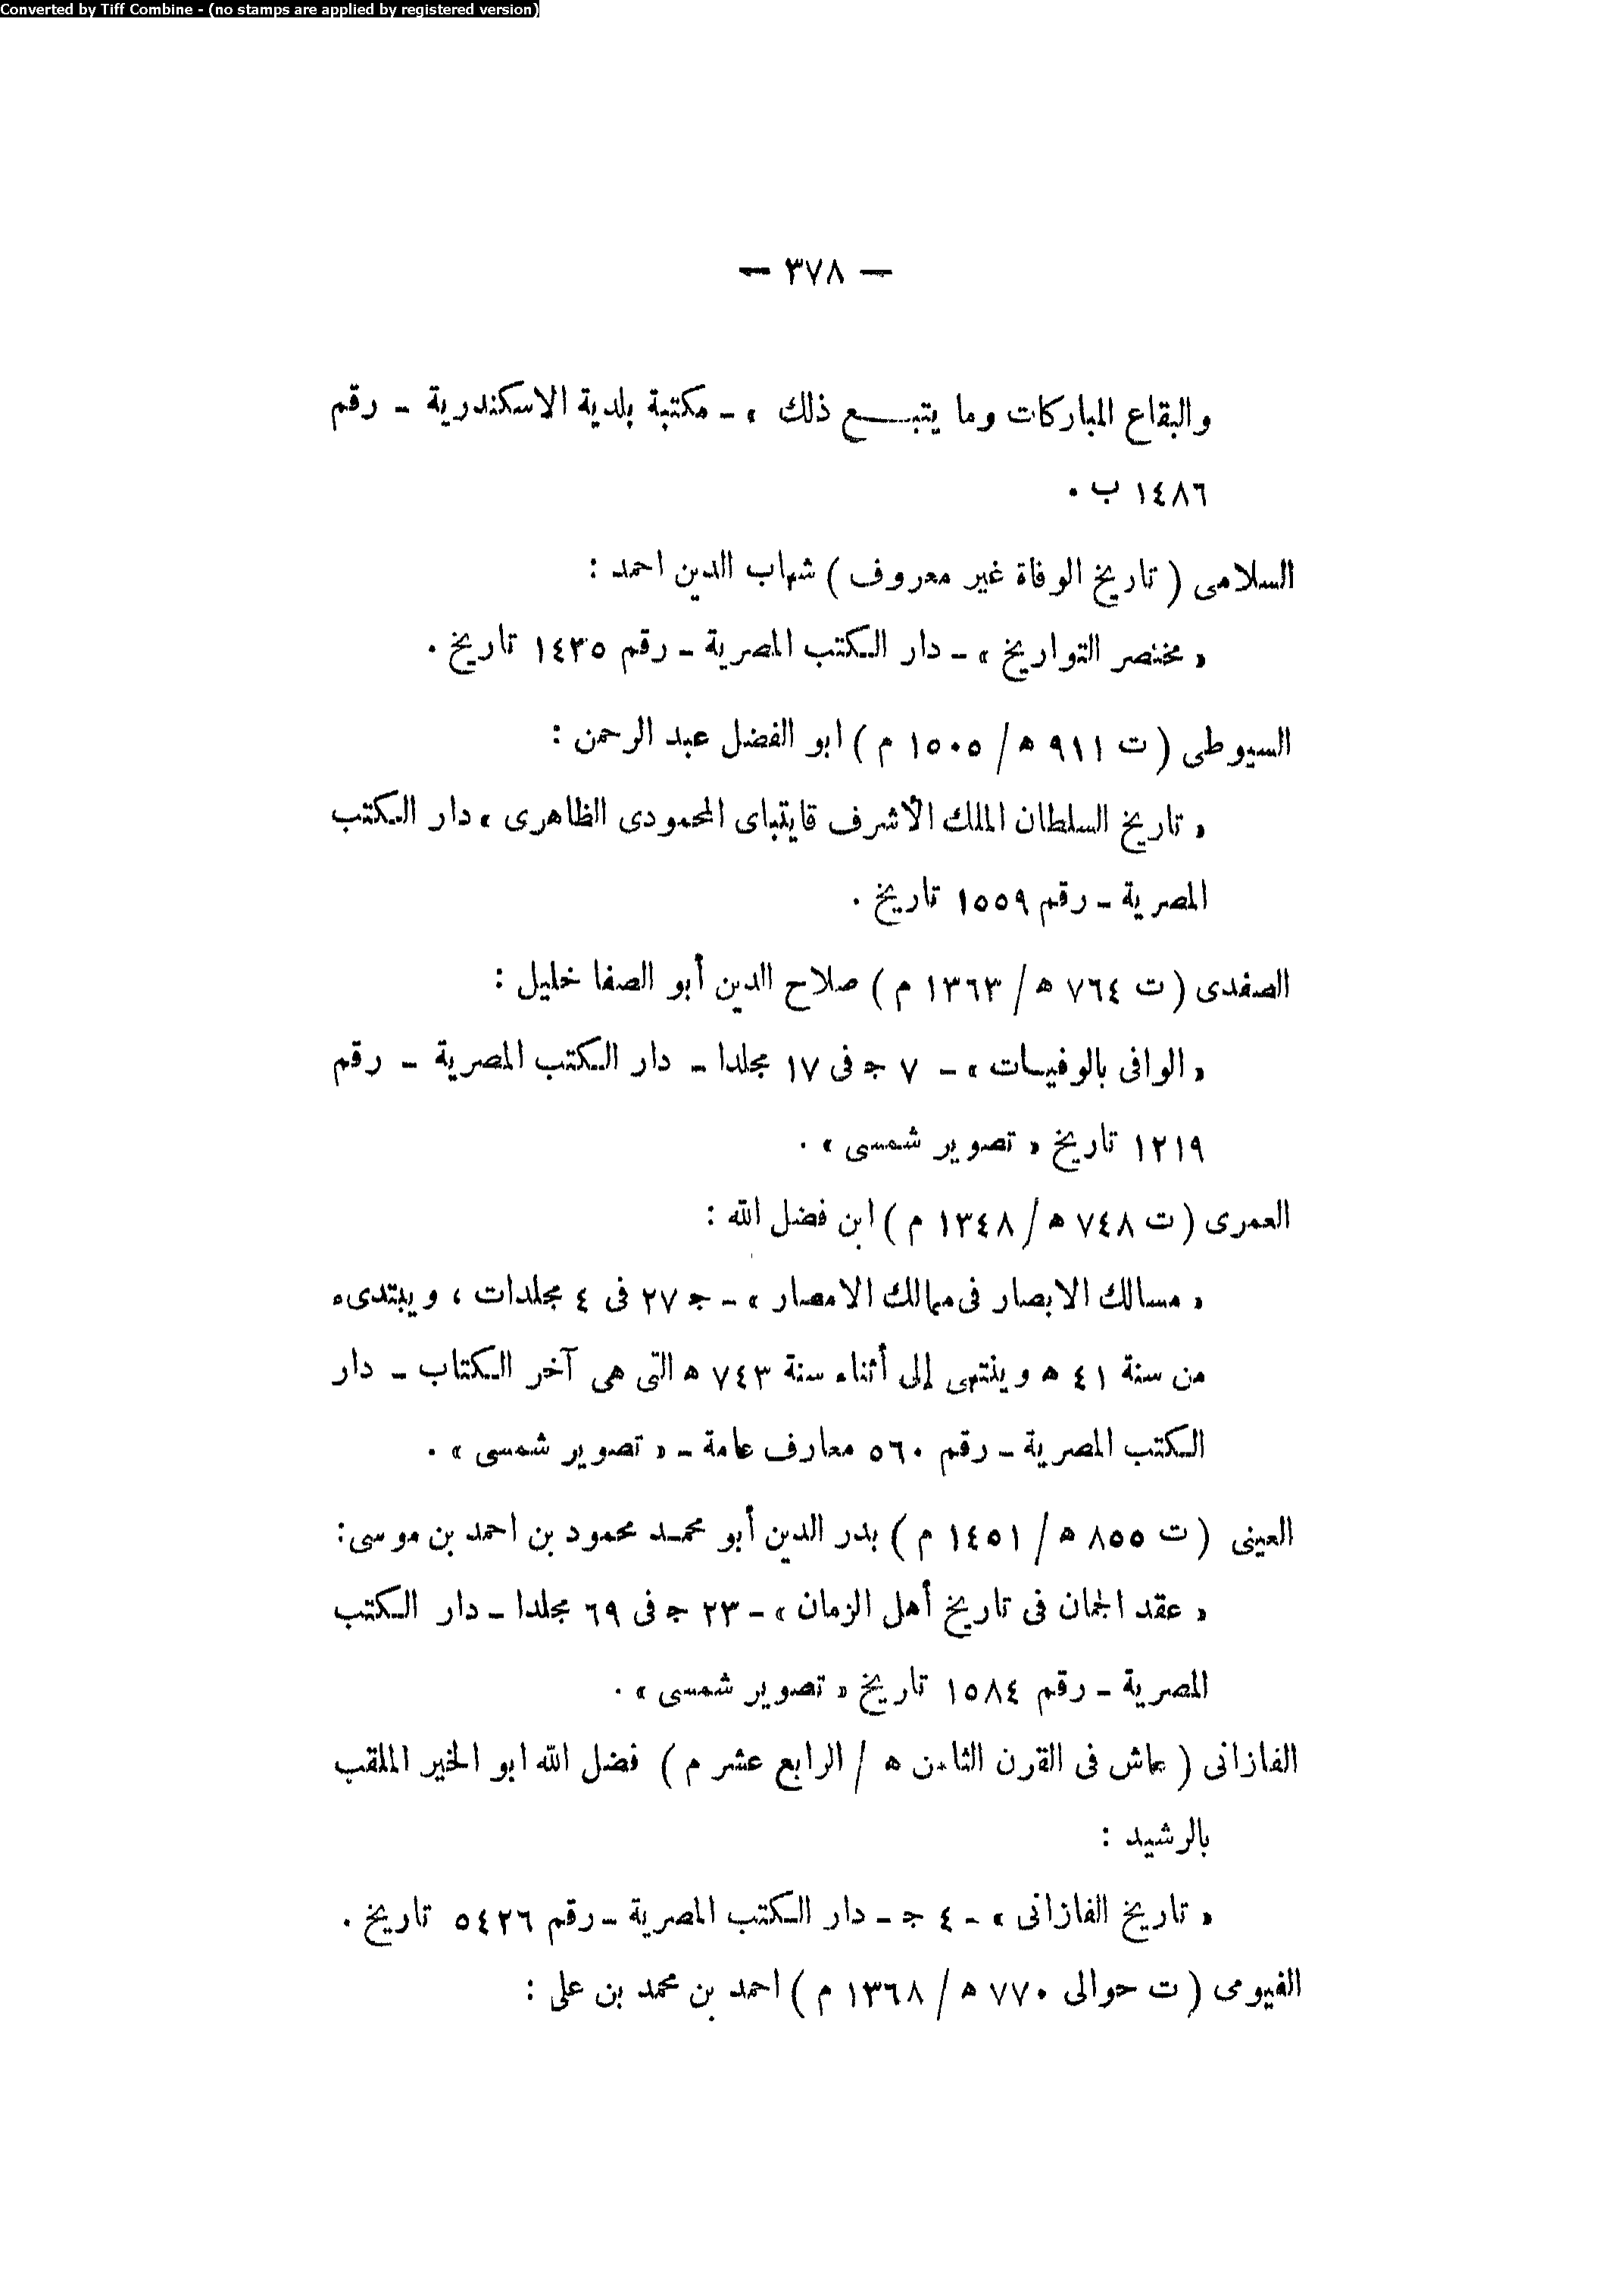 Converted by Tiff Combine - (no stamps are applied by registered version)
— ٣٧٨ —
والبقاع المباركات وما يتبـــــع ذلك » – مكتبة بلدية الاسكندرية – رقم
١٤٨٦ ب .
السلامى ( تاريخ الوفاة غير معروف ) شهاب الدين احمد :
« مختصر التواريخ » – دار الكتب المصرية – رقم ١٤٣٥ تاريخ .
السيوطى ( ت ٩١١ ه / ١٥٠٥ م ) ابو الفضل عبد الرحمن :
« تاريخ السلطان الملك الأشرف قايتباى المحمودى الظاهرى » دار الكتب
المصرية – رقم ١٥٥٩ تاريخ .
الصفدى ( ت ٧٦٤ ه / ١٣٦٣ م ) صلاح الدين أبو الصفا خليل :
« الوافى بالوفيات » – ٧ ج فى ١٧ مجلدا – دار الكتب المصرية – رقم
١٢١٩ تاريخ « تصوير شمسى » .
العمرى ( ت ٧٤٨ ه / ١٣٤٨ م ) ابن فضل الله :
« مسالك الابصار فى ممالك الامصار » – ج ٢٧ فى ٤ مجلدات ، ويبتدىء
من سنة ٤١ ه وينتهى إلى أثناء سنة ٧٤٣ ه التى هى آخر الكتاب – دار
الكتب المصرية – رقم ٥٦٠ معارف عامة – « تصوير شمسى » .
العينى ( ت ٨٥٥ ه / ١٤٥١ م ) بدر الدين أبو محمد محمود بن احمد بن موسى :
« عقد الجمان فى تاريخ أهل الزمان » – ٢٣ ج فى ٦٩ مجلدا – دار الكتب
المصرية – رقم ١٥٨٤ تاريخ « تصوير شمسى » .
الفازانى ( عاش فى القرن الثامن ه / الرابع عشر م ) فضل الله ابو الخير الملقب
بالرشيد :
« تاريخ الفازانى » – ٤ ج – دار الكتب المصرية – رقم ٥٤٢٦ تاريخ .
الفيومى ( ت حوالى ٧٧٠ ه / ١٣٦٨ م ) احمد بن محمد بن على :